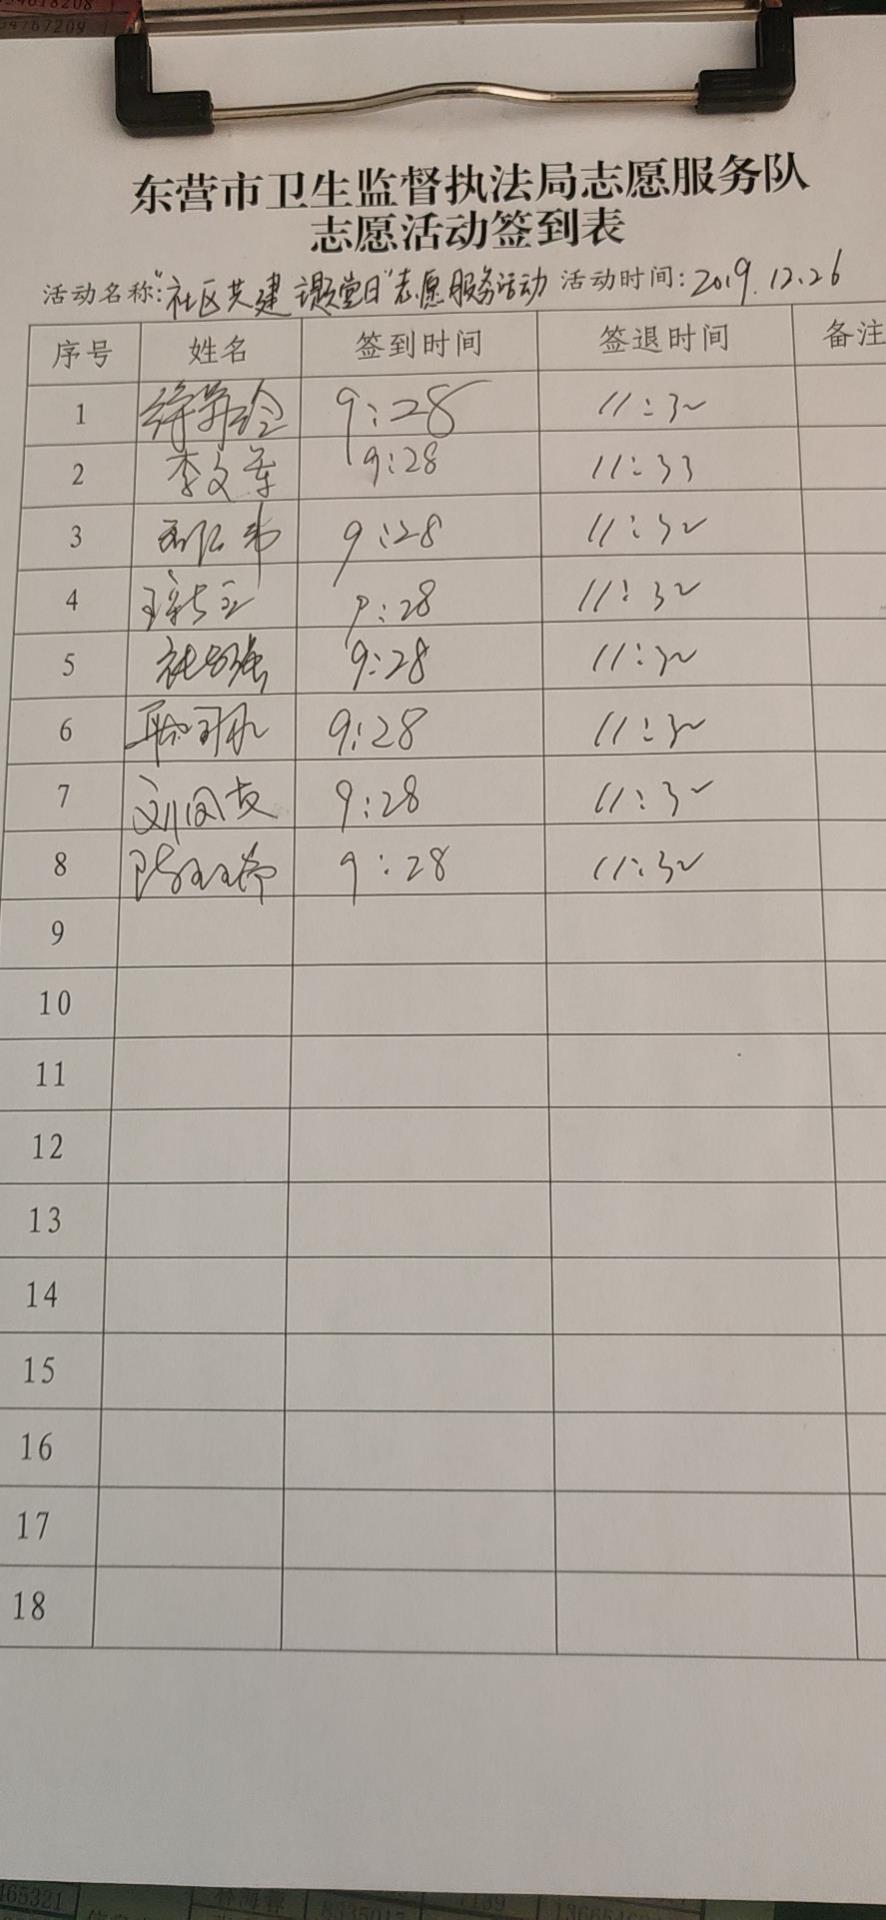 东营市卫生监督执法局志愿服务队
志愿活动签到表
活动名称:"社区共建 课堂日"志愿服务活动 活动时间: 2019.12.26
序号 姓名 签到时间 签退时间 备注
1 9:28 11:32
2 李文军 9:28 11:33
3 9:28 11:32
4 9:28 11:32
5 9:28 11:32
6 9:28 11:32
7 刘风友 9:28 11:32
8 9:28 11:32
9
10
11
12
13
14
15
16
17
18
465321